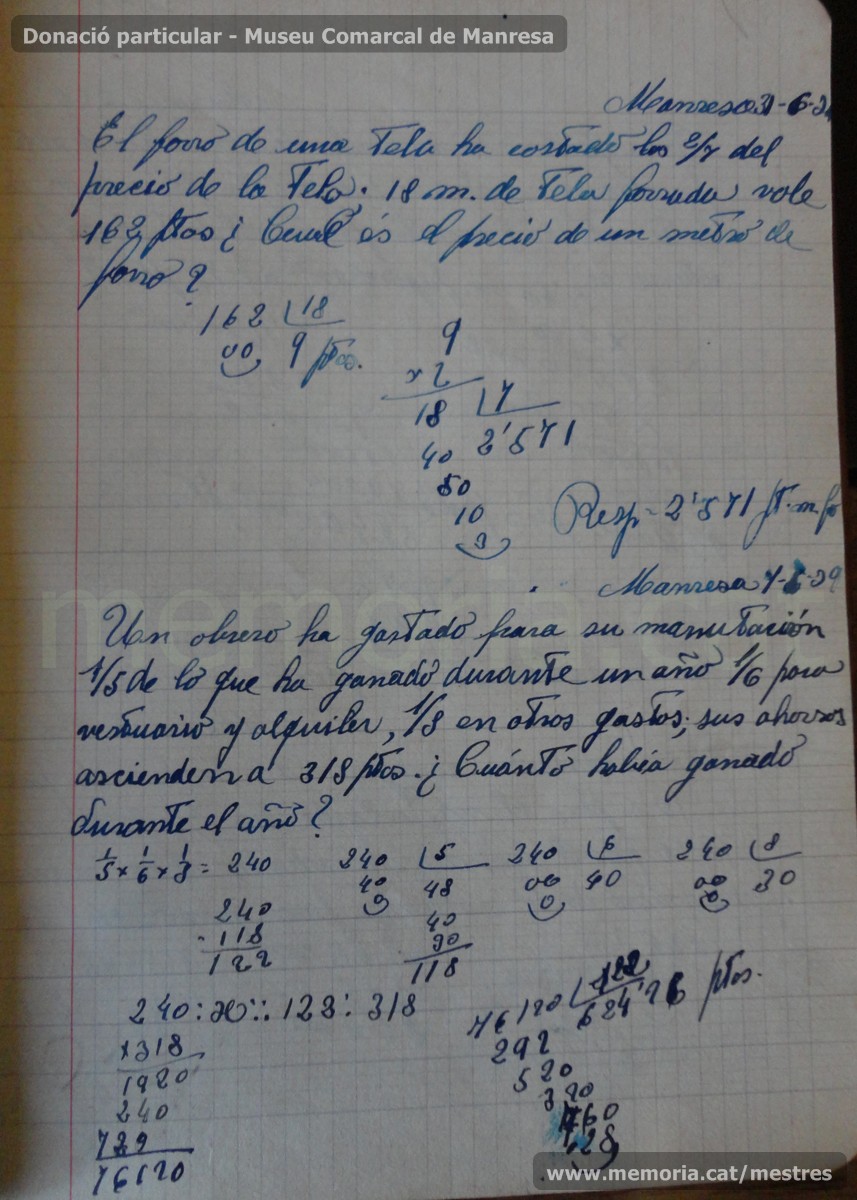 Donació particular - Museu Comarcal de Manresa
Manresa
El forro de una tela ha costado los 2/7 del
precio de la tela. 18 m. de tela forrada vale
162 ptas ¿Cual és el precio de un metro de
forro?
162 18
00 9 ptas.
9
x 2
18 7
40 2'571
50
10
3
Resp = 2'571 pt. m.
Manresa
Un obrero ha gastado para su manutación
1/5 de lo que ha ganado durante un año 1/6 para
vestuario y alquiler, 1/8 en otros gastos; sus ahorros
ascienden a 318 ptas. ¿Cuánto había ganado
durante el año?
1/5 x 1/6 x 1/8 = 240 240 5 240 6 240 8
40 48 00 40 00 30
0 0 0
240 40
- 118 30
122 118
240 : x :: 122 : 318
x 318
1920
240
720
76120
76120 122
292 624'26 ptas.
520
320
760
28
www.memoria.cat/mestres